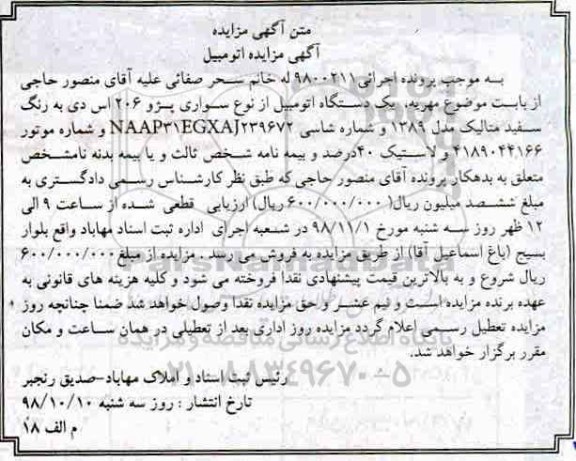 متن آگهی مزایده
آگهی مزایده اتومبیل
به موجب پرونده اجرائی ۹۸۰۰۲۱۱ له خانم سحر صفائی علیه آقای منصور حاجی
از بابت موضوع مهریه، یک دستگاه اتومبیل از نوع سواری پژو ۲۰۶ اس دی به رنگ
سفید متالیک مدل ۱۳۸۹ و شماره شاسی NAAP۳۱EGXAJ۲۳۹۶۷۲ و شماره موتور
۴۱۸۹۰۴۴۱۶۶ و لاستیک ۴۰درصد و بیمه نامه شخص ثالث و یا بیمه بدنه نامشخص
متعلق به بدهکار پرونده آقای منصور حاجی که طبق نظر کارشناس رسمی دادگستری به
مبلغ ششصد میلیون ریال( ۶۰۰/۰۰۰/۰۰۰ ریال) ارزیابی قطعی شده از ساعت ۹ الی
۱۲ ظهر روز سه شنبه مورخ ۹۸/۱۱/۱ در شعبه اجرای اداره ثبت اسناد مهاباد واقع بلوار
بسیج (باغ اسماعیل آقا) از طریق مزایده به فروش می رسد . مزایده از مبلغ ۶۰۰/۰۰۰/۰۰۰
ریال شروع و به بالاترین قیمت پیشنهادی نقدا فروخته می شود و کلیه هزینه های قانونی به
عهده برنده مزایده است و نیم عشر و حق مزایده نقدا وصول خواهد شد ضمنا چنانچه روز
مزایده تعطیل رسمی اعلام گردد مزایده روز اداری بعد از تعطیلی در همان ساعت و مکان
مقرر برگزار خواهد شد.
پایگاه اطلاع رسانی مناقصه و مزایده
۰۲۱-۸۸۳۴۹۶۷۰-۵
رئیس ثبت اسناد و املاک مهاباد-صدیق رنجبر
تاریخ انتشار : روز سه شنبه ۹۸/۱۰/۱۰
م الف ۱۸